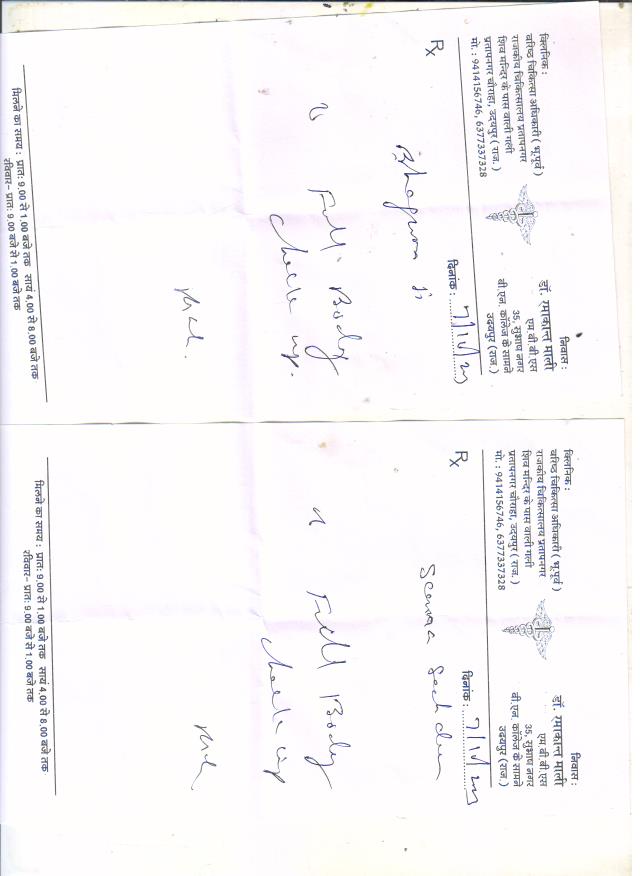 क्लिनिक :
वरिष्ठ चिकित्सा अधिकारी ( भू.पूर्व )
राजकीय चिकित्सालय प्रतापनगर
शिव मन्दिर के पास वाली गली
प्रतापनगर चौराहा, उदयपुर ( राज. )
मो. : 9414156746, 6377337328
निवास :
डॉ. रमाकान्त माली
एम.बी.बी.एस
35, सुभाष नगर
बी.एन. कॉलेज के सामने
उदयपुर (राज.)
Rx
दिनांक :
Full Body
Check up.
मिलने का समय : प्रातः 9.00 से 1.00 बजे तक सायं 4.00 से 8.00 बजे तक
रविवार- प्रातः 9.00 बजे से 1.00 बजे तक
क्लिनिक :
वरिष्ठ चिकित्सा अधिकारी ( भू.पूर्व )
राजकीय चिकित्सालय प्रतापनगर
शिव मन्दिर के पास वाली गली
प्रतापनगर चौराहा, उदयपुर ( राज. )
मो. : 9414156746, 6377337328
निवास :
डॉ. रमाकान्त माली
एम.बी.बी.एस
35, सुभाष नगर
बी.एन. कॉलेज के सामने
उदयपुर (राज.)
Rx
दिनांक :
Full Body
Check up
मिलने का समय : प्रातः 9.00 से 1.00 बजे तक सायं 4.00 से 8.00 बजे तक
रविवार- प्रातः 9.00 बजे से 1.00 बजे तक